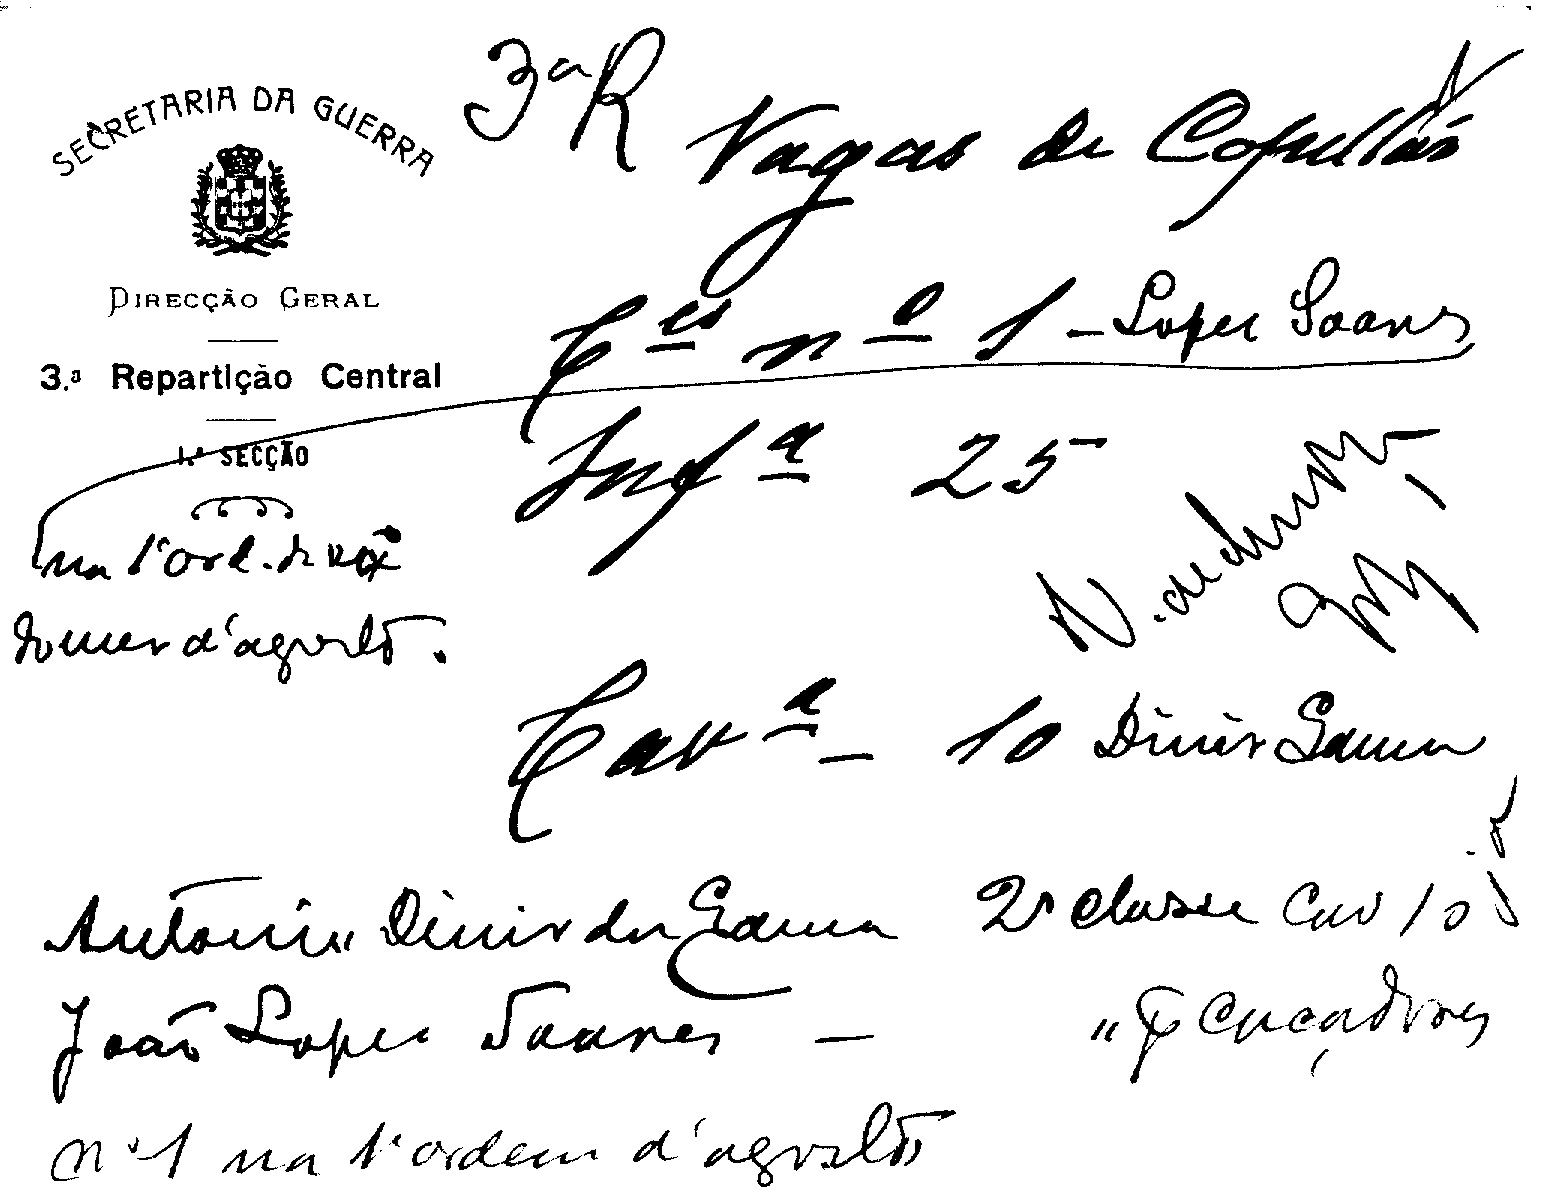 SECRETARIA DA GUERRA
DIRECÇÃO GERAL
3.ª Repartição Central
1.ª SECÇÃO
3ª R
Vagas de Capellão
Ces nº 1 - Lopes Soares
na 1ª ord. de
d'agosto.
Infª 25
Cavª - 10 Diniz Gama
Antonio Diniz da Gama 2ª classe Cav 10
João Lopes Soares — " Caçadores
nº 1 na 1ª ordem d'agosto